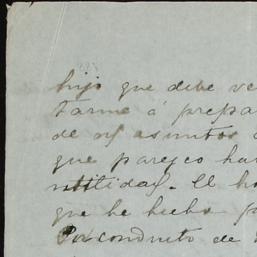 hijo que debe ve
tarme á prepa
de mis asuntos
que parezco ha
ntilidad. El ho
que he hecho p
Por conducto de